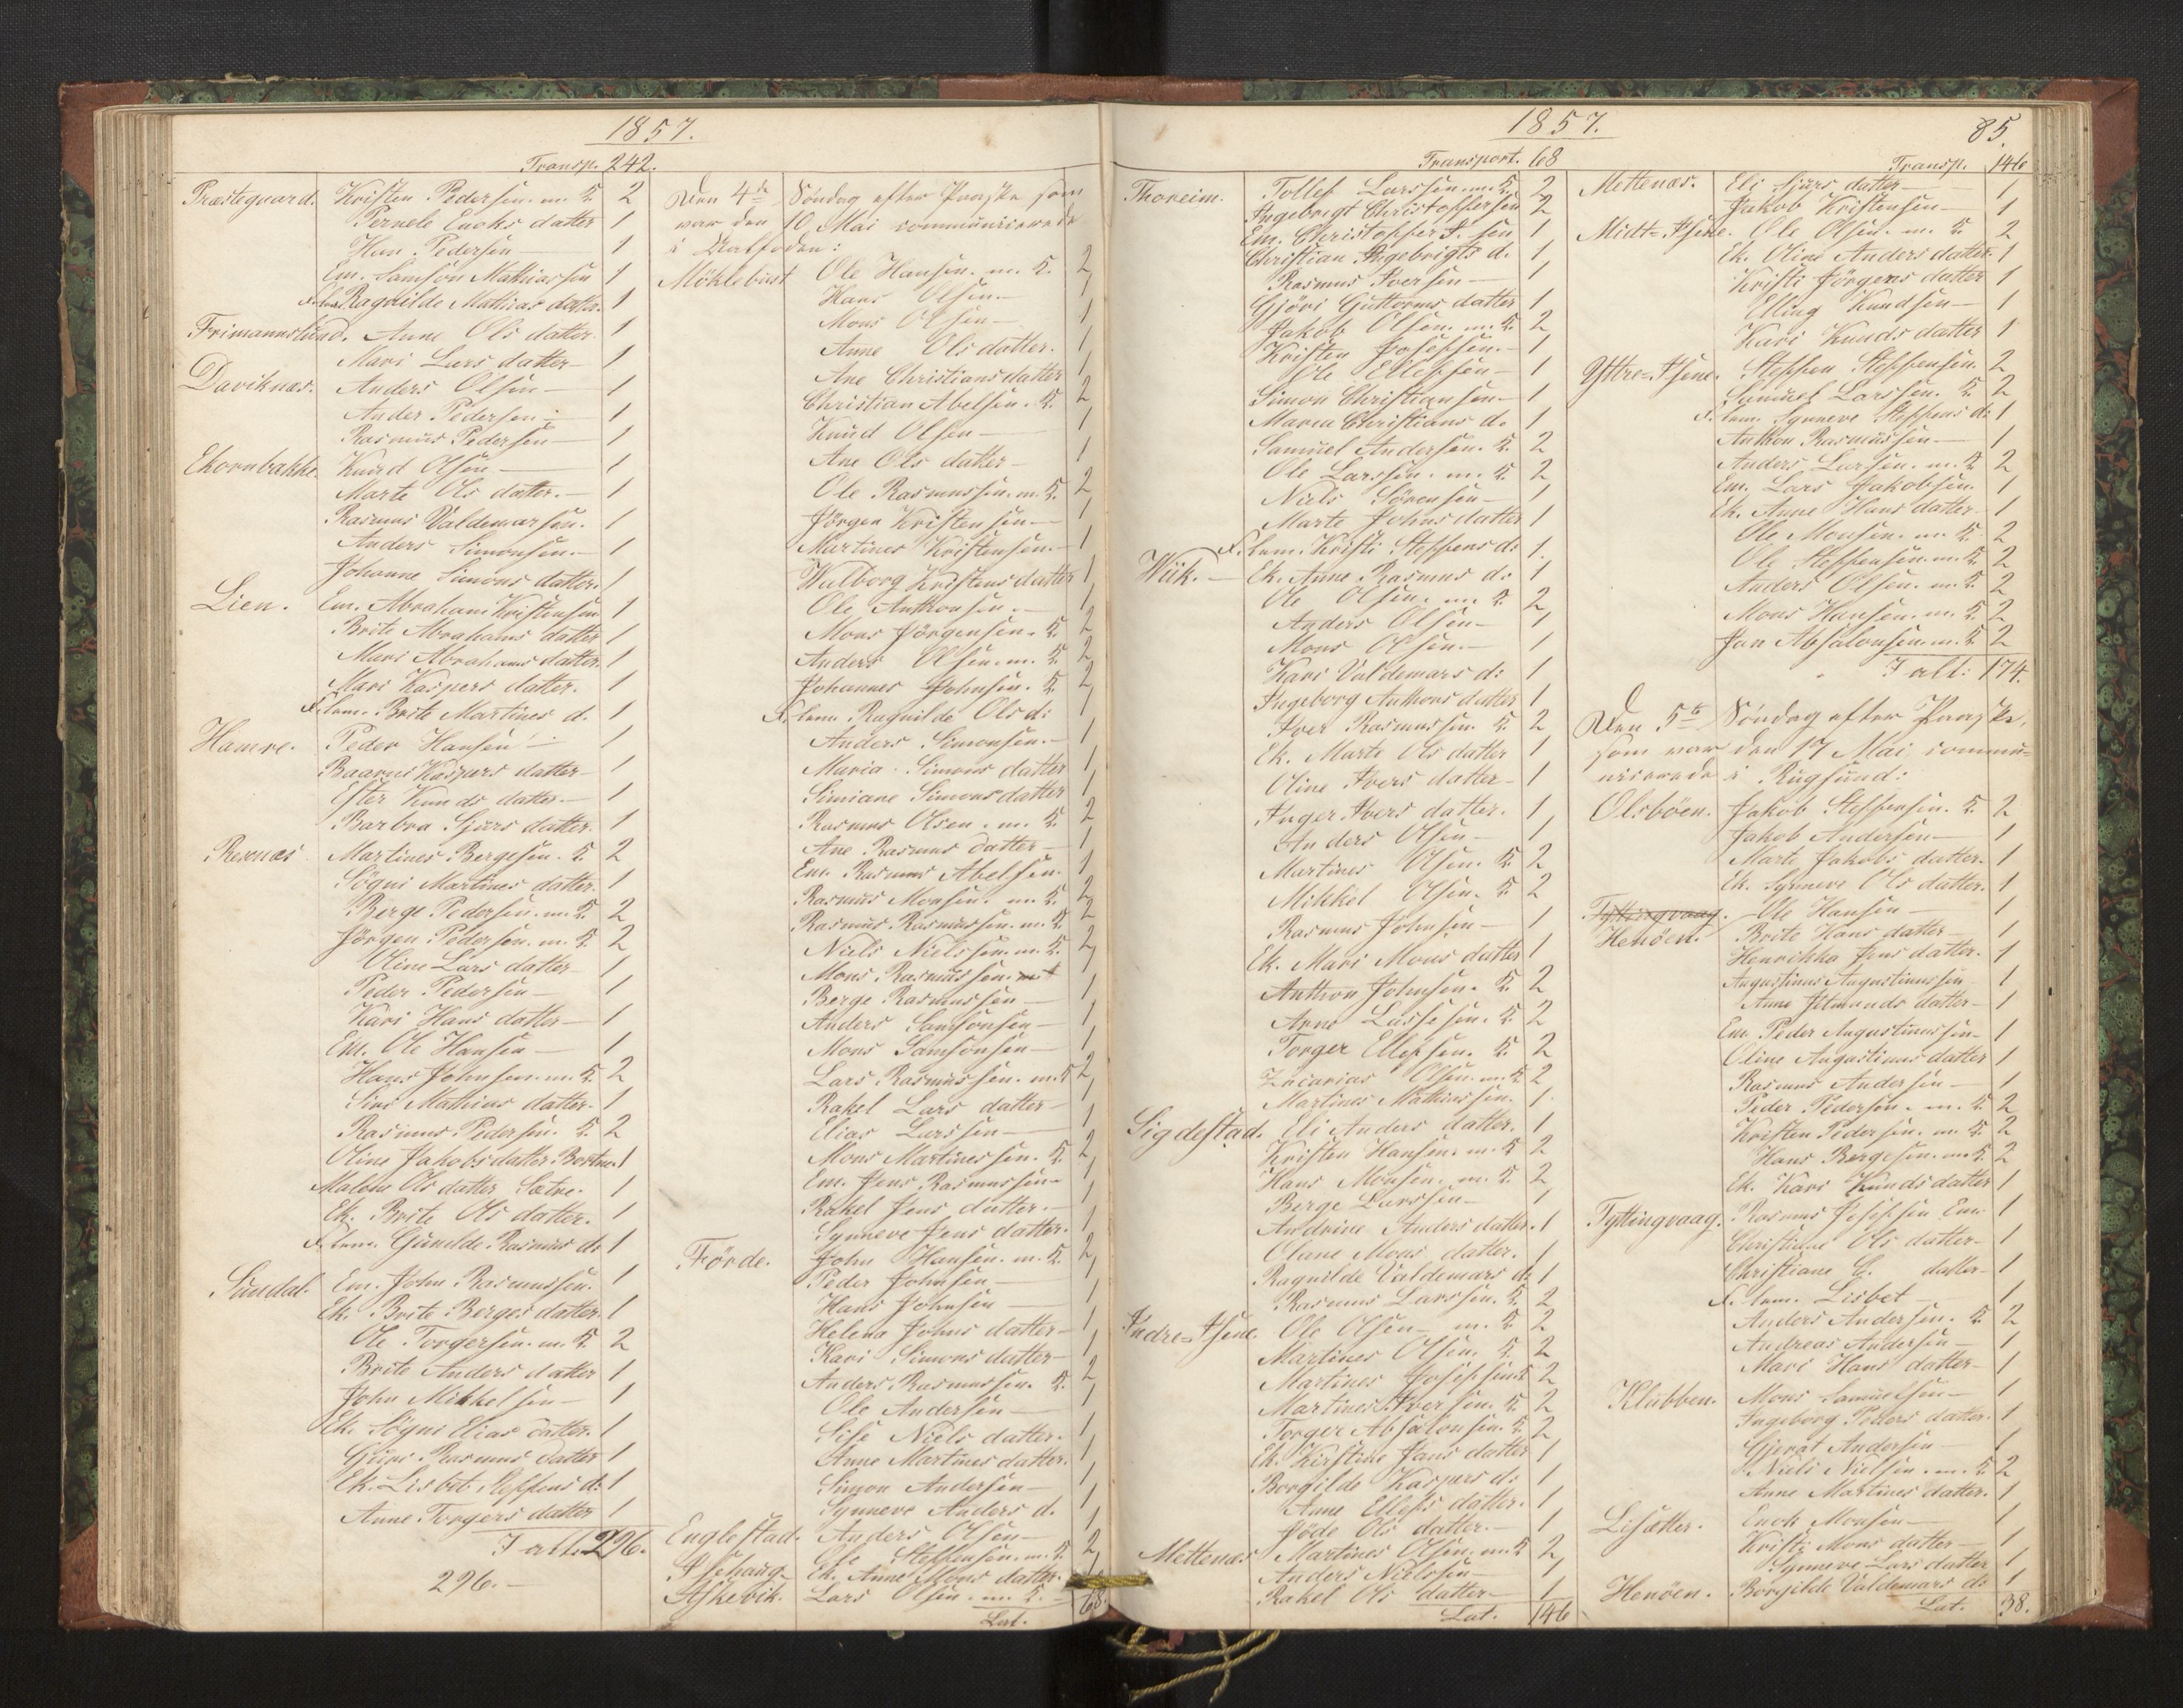 1857.
Transp. 242.
Præstegaard. Kristen Pedersen. m. K. 2
Pernele Enoks datter 1
Hans Pedersen 1
Em. Samson Mathiassen 1
F. lem. Ragnilde Mathias datter. 1
Frimannslund. Anne Ols datter. 1
Mari Lars datter 1
Daviknæs. Anders Olsen 1
Ander Pedersen 1
Rasmus Pedersen 1
Ekornbakke. Knud Olsen 1
Marte Ols datter. 1
Rasmus Valdemarsen. 1
Anders Simonsen. 1
Johanne Simons datter. 1
Lien. Em. Abraham Kristensen 1
Brite Abrahams datter 1
Mari Abrahams datter. 1
Mari Kaspers datter. 1
F. lem. Brite Martines d. 1
Hamre. Peder Hansen 1
Baarni Kaspers datter 1
Ester Knuds datter. 1
Barbra Sjurs datter. 1
Rexnæs Martines Bergesen. K. 2
Sögni Martines datter. 1
Berge Pedersen. m. K. 2
Jörgen Pedersen. m. K. 2
Oline Lars datter 1
Peder Pedersen 1
Kari Hans datter 1
Em. Ole Hansen 1
Hans Johnsen. m. K. 2
Siri Mathias datter. 1
Rasmus Pedersen. K. 2
Oline Jakobsdatter Bortne 1
Malene Ols datter Sætre. 1
Ek. Brite Ols datter. 1
F. lem. Gunilde Rasmus d: 1
Sundal. Em. John Rasmussen. 1
Ek. Brite Berges datter. 1
Ole Torgersen. m. K. 2
Brite Anders datter 1
John Mikkelsen 1
Ek. Sögni Elias datter. 1
Guri Rasmus datter 1
Ek. Lisbet Steffens d: 1
Anne Torgers datter 1
I alt. 296.
296.
Den 4de Söndag efter Paaske som
var den 10 Mai communicerede
i Aalfoden:
Möklebust Ole Hansen. m. K. 2
Hans Olsen 1
Mons Olsen 1
Anne Ols datter. 1
Ane Christians datter 1
Christian Abelsen. K. 2
Knud Olsen 1
Ane Ols datter 1
Ole Rasmussen. m. K. 2
Jörgen Kristensen 1
Martines Kristensen. 1
Walborg Kristens datter 1
Ole Anthonsen. 1
Mons Jörgensen. K. 2
Anders Olsen. m. K. 2
Johannes Johnsen. K. 2
F. lem. Ragnilde Ols d: 1
Anders Simonsen. 1
Maria Simons datter 1
Simiane Simons datter 1
Rasmus Olsen. m. K. 2
Ane Rasmus datter 1
Em. Rasmus Abelsen. 1
Rasmus Monsen. m. K. 2
Rasmus Rasmussen. m. K. 2
Niels Nielssen. m. K. 2
Mons Rasmussen. 1
Berge Rasmussen 1
Anders Samsonsen 1
Mons Samsonsen 1
Lars Rasmussen. m. K 2
Rakel Lars datter 1
Elias Larssen 1
Mons Martinessen. K. 2
Em. Jens Rasmussen 1
Rakel Jens datter. 1
Synneve Jens datter. 1
Förde. John Hansen. m. K. 2
Peder Johnsen 1
Hans Johnsen 1
Helena Johns datter 1
Kari Simons datter 1
Anders Rasmussen. K. 2
Ole Andersen 1
Sise Niels datter. 1
Anne Martines datter. 1
Simon Andersen 1
Synneve Anders d. 1
Englestad. Anders Olsen 1
Ole Steffensen. m. K. 2
Isehaug Ek. Anne Mons datter. 1
Askevik. Lars Olsen. m. K.
Lat. 68.
1857. 85.
Transport. 68
Thoreim. Tollef Larssen. m. K. 2
Ingebrigt Christoffersen 2
Em. Christoffer A. sen 1
Christian Ingebrigts d. 1
Rasmus Iversen 1
Gjöri Guttorms datter 1
Jakob Olsen. m. K. 2
Kristen Josefsen. 1
Ole Ellefsen 1
Simon Christiansen 1
Maria Christians d. 1
Samuel Andersen. K. 2
Ole Larssen. m. K. 2
Niels Sörensen 1
Marte Johns datter 1
F. lem. Kristi Steffens d: 1.
Wiik. Ek. Anne Rasmus d: 1
Ole Olsen. m. K. 2
Anders Olsen 1
Mons Olsen. 1
Kari Valdemars d: 1
Ingeborg Anthons datter 1
Iver Rasmussen. K. 2
Ek. Marte Ols datter 1
Oline Ivers datter 1
Inger Ivers datter. 1
Anders Olsen 1
Martines Olsen. K. 2
Mikkel Olsen. K. 2
Rasmus Johnsen 1
Ek. Mari Mons datter 1
Anthon Johnsen. K. 2
Arne Lassesen. K. 2
Torger Ellefsen. K. 2
Zacarias Olsen. m. K. 2
Martines Mathiassen. 1.
Sigdestad. Eli Anders datter. 1
Kristen Hansen. m. K. 2
Hans Monsen. m. K. 2
Berge Larssen 1
Andrine Anders datter. 1
Olane Mons datter. 1
Ragnilde Valdemars d: 1
Rasmus Larssen. K. 2
Indre=Isene. Ole Olsen m. K. 2
Martines Olsen. K. 2
Martines Josefsen. K 2
Martines Iversen. K. 2
Torger Absalonsen. K 2
Ek. Kirstine Jans datter 1
Borgilde Kaspers d: 1
Anne Ellefs datter. 1
Jöde Ols datter. 1
Mettenæs Martines Olsen. m. K 2
Anders Nielssen 1
Rakel Ols datter 1
Lat. 146
Transp. 146
Mettenæs. Eli Sjurs datter 1
Jakob Kristensen 1
Midt=Isene. Ole Olsen. m. K 2
Ek. Oline Anders datter. 1
Kristi Jörgens datter 1
Elling Knudsen 1
Kari Knuds datter 1
Yttre=Isene. Steffen Steffensen. 2
Samuel Larssen. K. 2
F. lem. Synneve Steffens d: 1
Anthon Rasmussen 1
Anders Larsen. m. K. 2
Em. Lars Jakobsen. 1
Ek. Anne Hans datter. 1
Ole Monsen. m. K. 2
Ole Steffensen. m. K. 2
Anders Olsen. m. K. 2
Mons Hansen. m. K. 2
Jan Absalonsen. m. K. 2
I alt: 174.
Den 5te Söndag efter Paaske,
som var den 17 Mai commu=
nicerede i Rugsund:
Olsböen. Jakob Steffensen. K. 2
Jakob Andersen 1
Marte Jakobs datter. 1
Ek. Synneve Ols datter. 1
Tyttingvaag. Ole Hansen 1
Henöen. Brite Hans datter 1
Henrikka Jens datter. 1
Augustinus Augustinussen 1
Anne Itmunds datter 1
Em. Peder Augustinussen 1
Oline Augustinus datter 1
Rasmus Andersen 1
Peder Pedersen. m. K 2
Kristen Pedersen. m. K. 2
Hans Bergesen. m. K 2
Ek. Kari Knuds datter 1
Tyttingvaag. Rasmus Josefsen Em. 1
Christiane Ols datter 1
Christiane C. datter 1
F. lem. Lisbet 1
Anders Andersen. K. 2
Andreas Andersen 1
Mari Hans datter 1
Klubben. Mons Samuelsen 1
Ingeborg Peders datter. 1
Gjerat Andersen 1
Niels Nielsen. m. K. 2
Anne Martines datter. 1
Lisætter. Enok Monsen 1
Kristi Mons datter 1
Synneve Lars datter 1
Henöen. Borgilde Valdemars d: 1
Lat. 38.